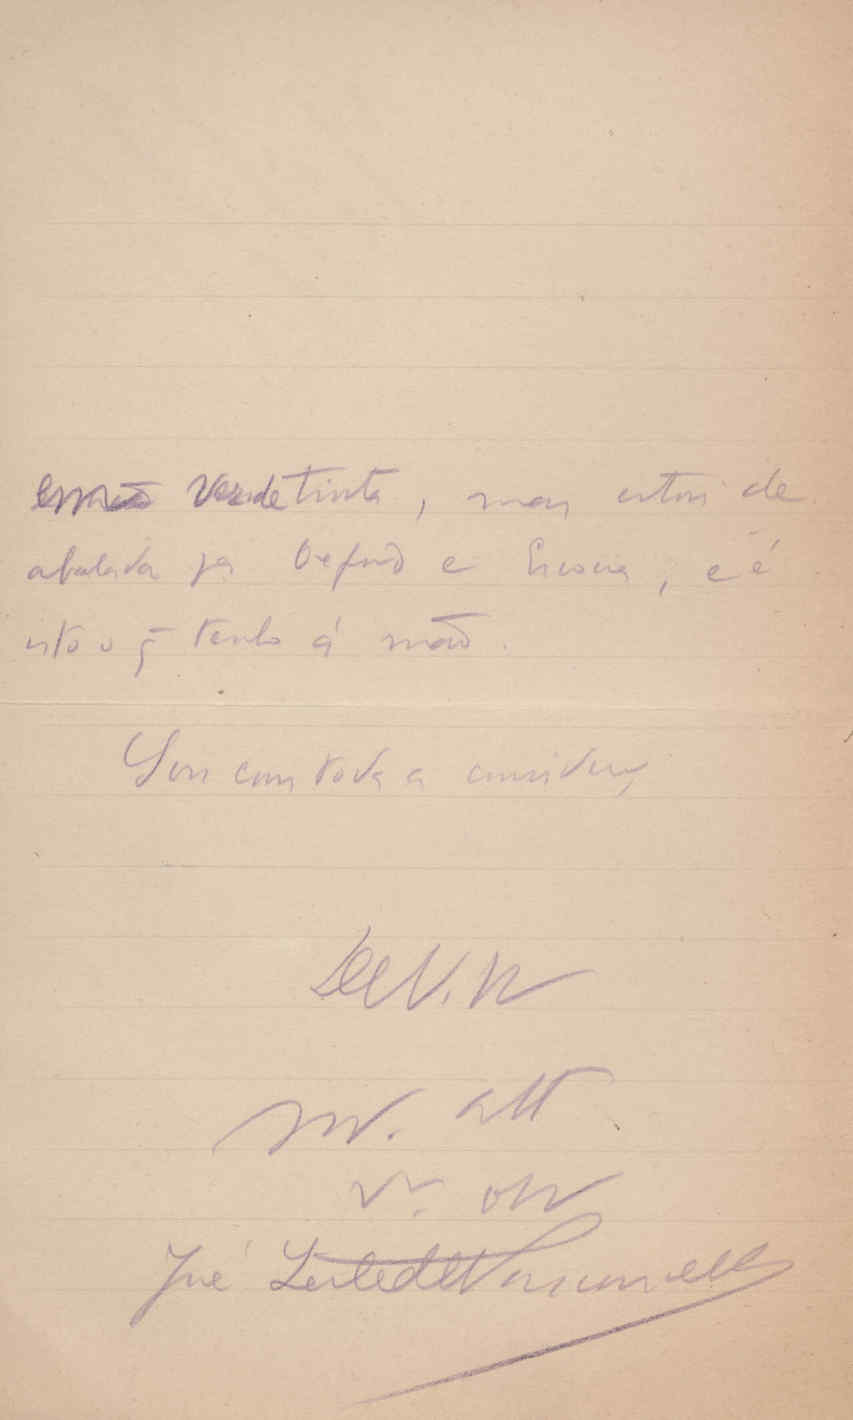 tinta, mas estou de
abalada pª Oxford e Escocia, e é
isto o q̃ tenho á mão.
Sou com toda a consider.
De V. 
m. att
vr. obr
José Leite de Vasconcellos